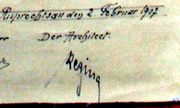 Ruprechtsau den 2. Februar 1907
Der Architect.
Reging